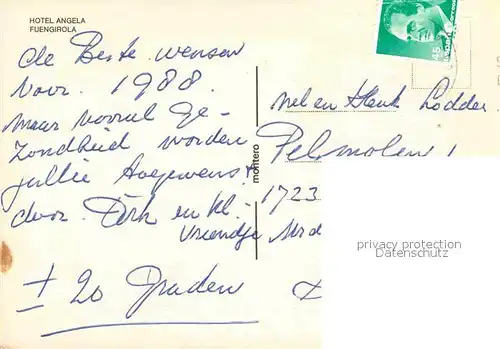 HOTEL ANGELA
FUENGIROLA
de Beste wensen
voor. 1988.
maar vooral ge-
zondheid worden
jullie toegewenst
door. Dirk en kl.
vriendje
± 20 graden
montero
nel en Henk Lodder
Pelmolen 1
1723
45
privacy protection
Datenschutz